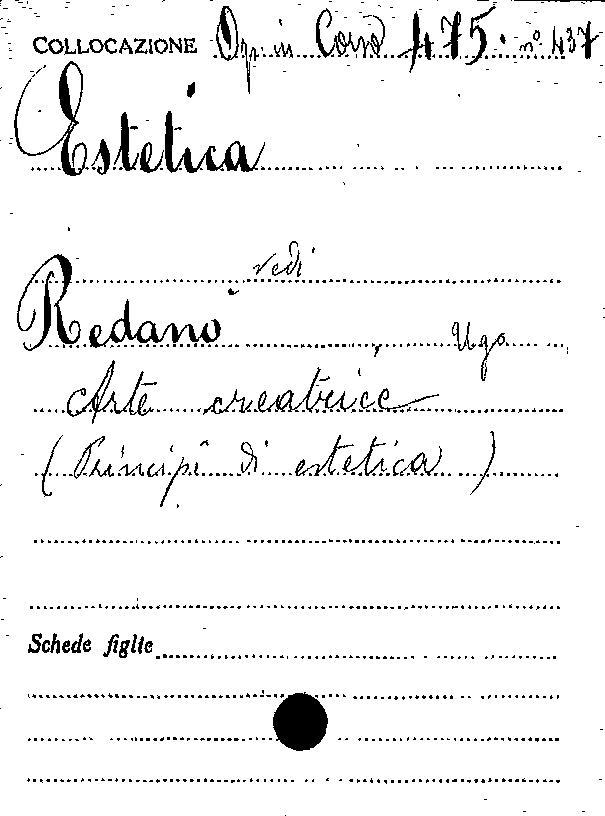 COLLOCAZIONE Op. in Corso 475. nº 437
Estetica
vedi
Redano, Ugo
Arte creatrice
(Principî di estetica)
Schede figlie